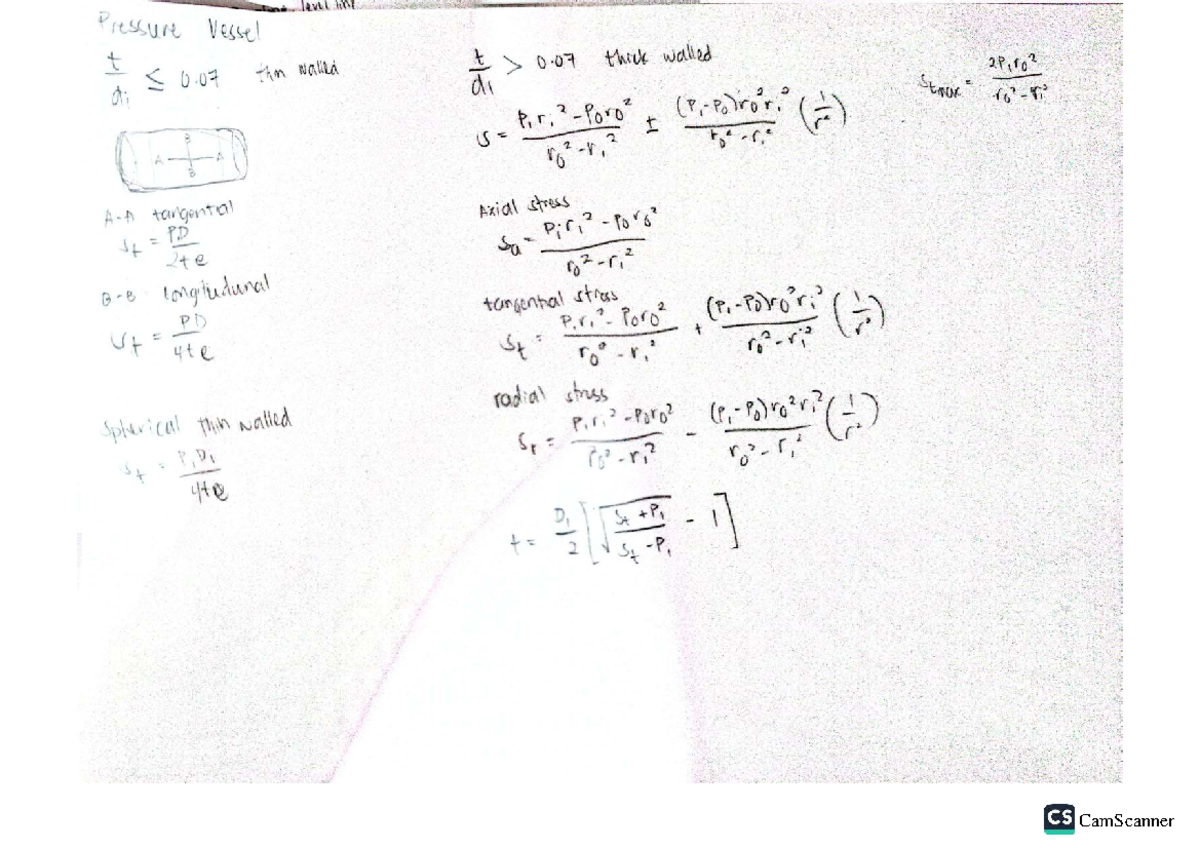 level line
Pressure Vessel
t/di ≤ 0.07 thin walled
A A
B
B
A-A tangential
St = PD/2te
B-B longitudunal
St = PD/4te
Spherical thin walled
St = PiDi/4te
t/di > 0.07 thick walled
S = (Piri² - Poro²)/(ro² - ri²) ± ((Pi-Po)ro²ri²)/(ro² - ri²) (1/r²)
Axial stress
Sa = (Piri² - Poro²)/(ro² - ri²)
tangential stress
St = (Piri² - Poro²)/(ro² - ri²) + ((Pi-Po)ro²ri²)/(ro² - ri²) (1/r²)
radial stress
Sr = (Piri² - Poro²)/(ro² - ri²) - ((Pi-Po)ro²ri²)/(ro² - ri²) (1/r²)
t = Di/2 [√((St + Pi)/(St - Pi)) - 1]
Stmax = 2Piro²/(ro² - ri²)
CS CamScanner